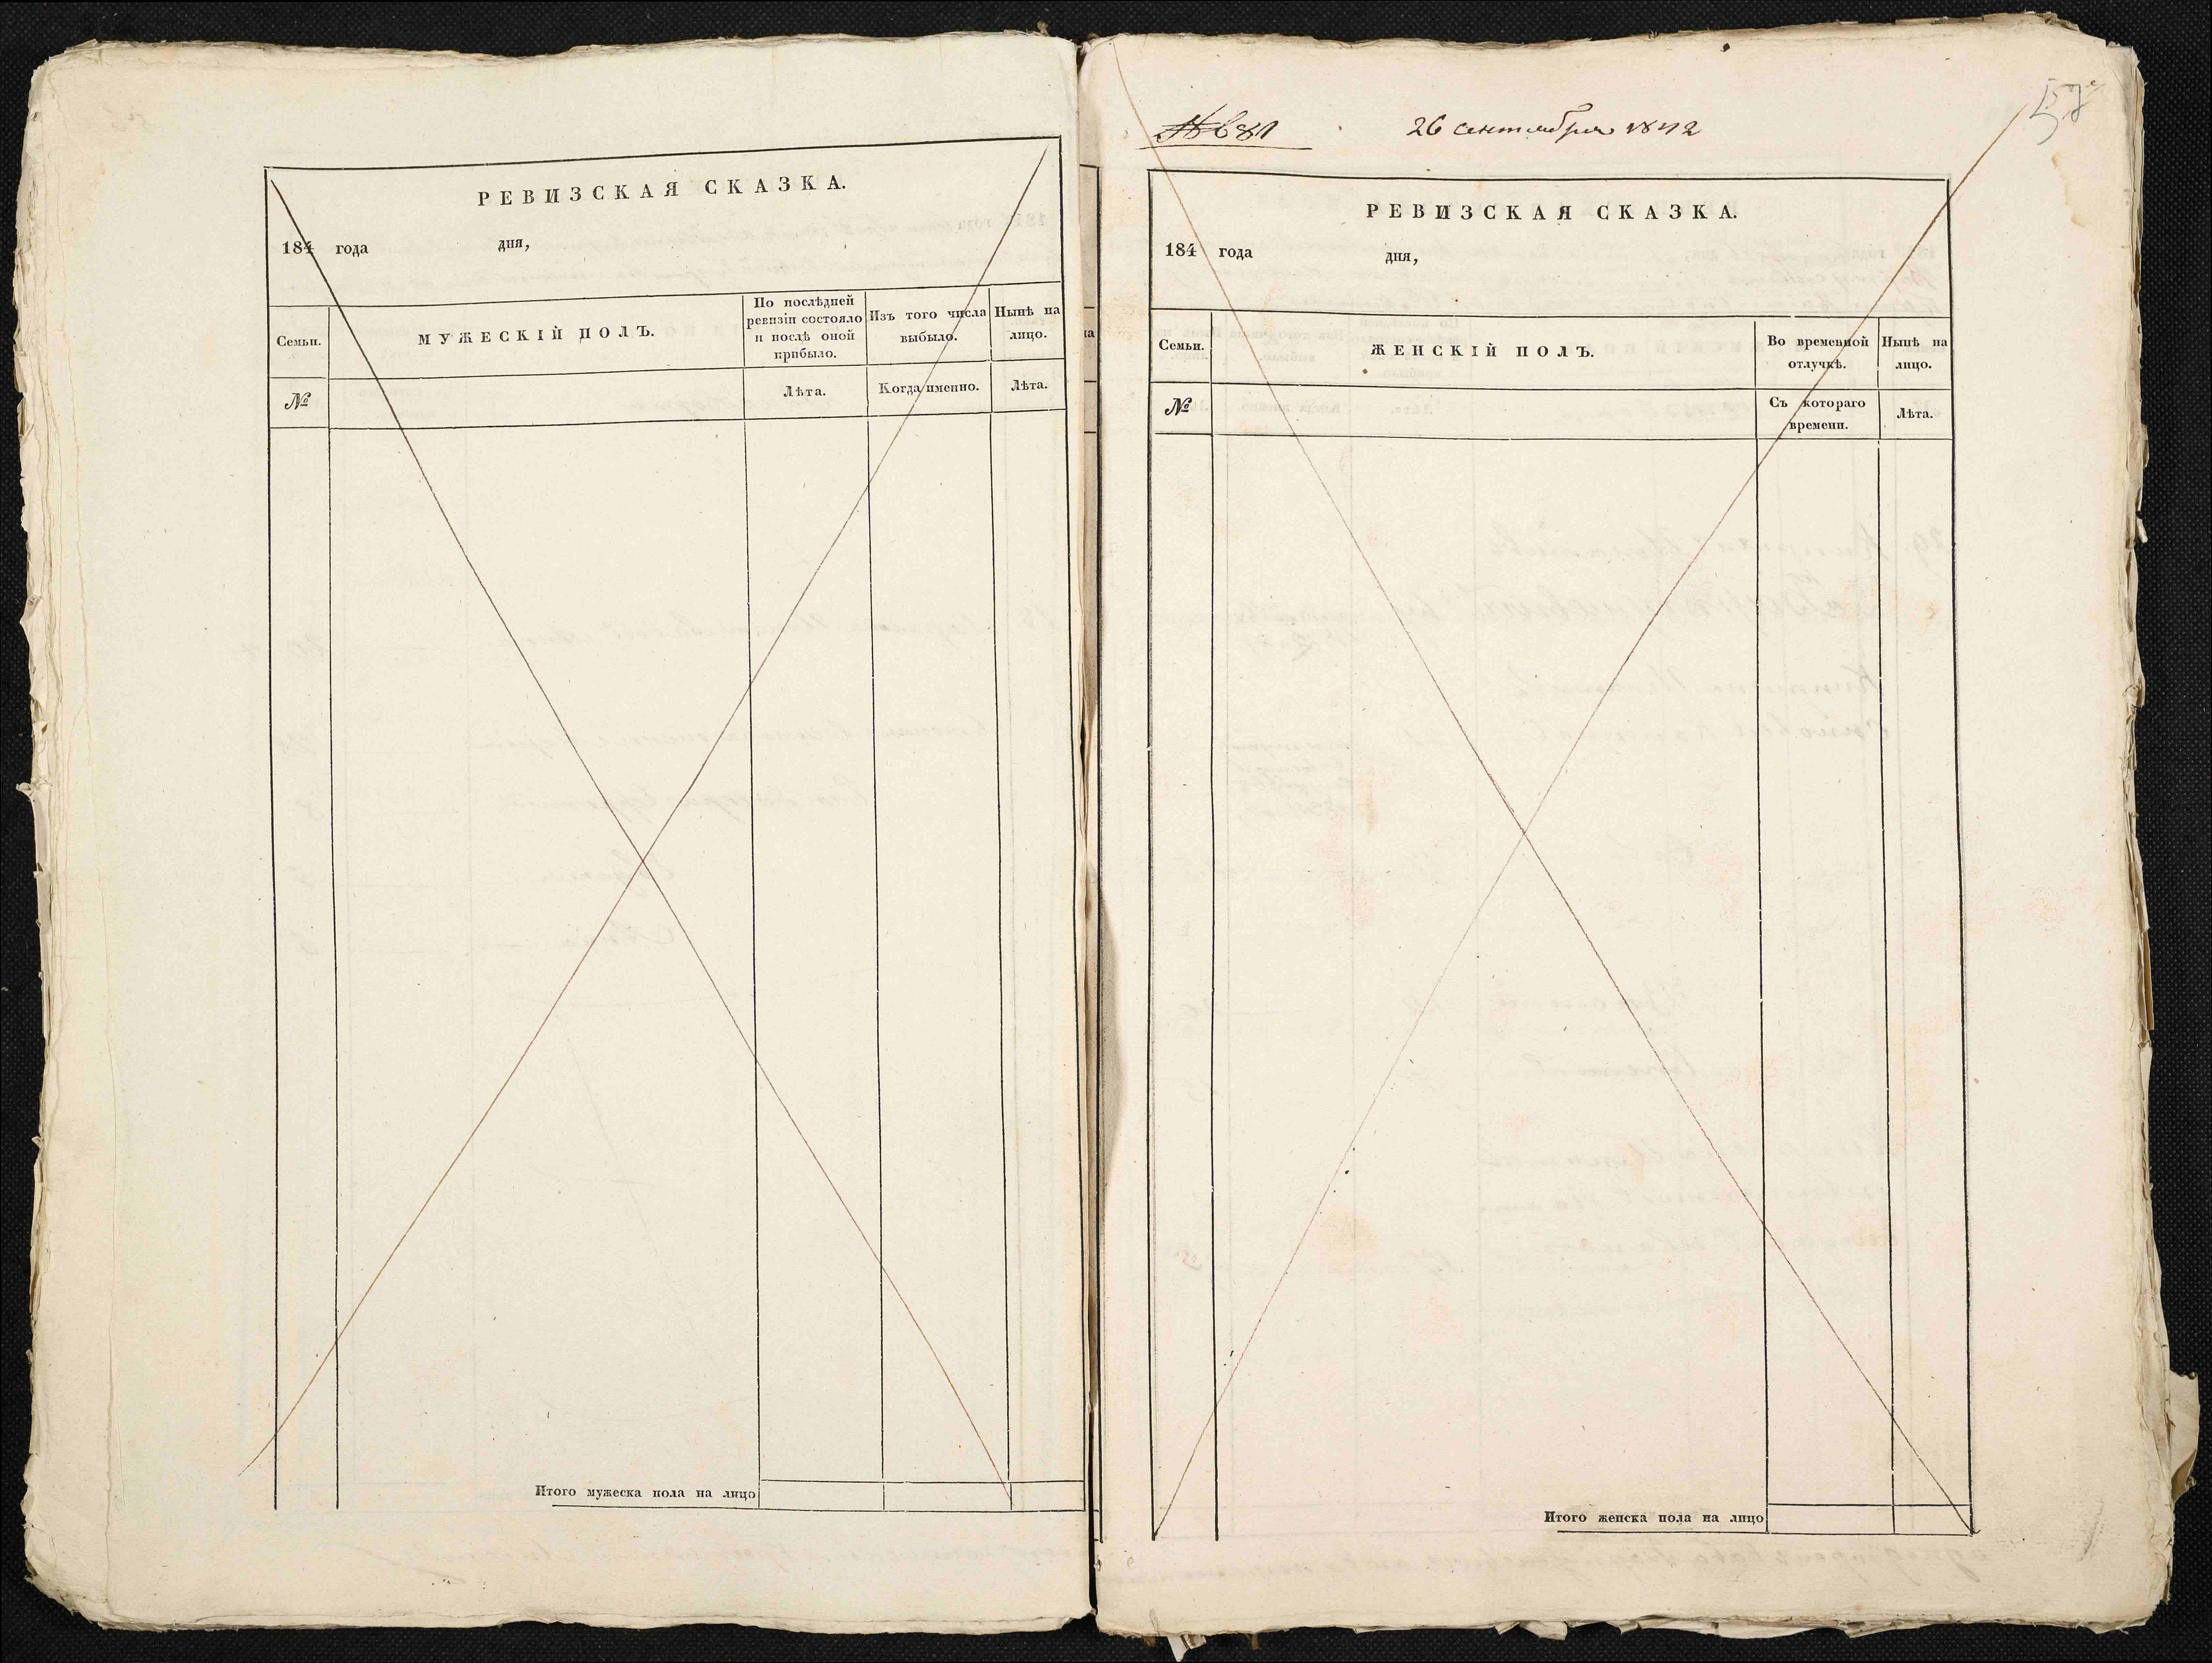 РЕВИЗСКАЯ СКАЗКА.
184 года дня,
Семьи.
МУЖЕСКІЙ ПОЛЪ.
По послѣдней
ревизіи состояло
и послѣ оной
прибыло.
Изъ того числа
выбыло.
Нынѣ на
лицо.
№
Лѣта.
Когда именно.
Лѣта.
Итого мужеска пола на лицо
26 сентября 1842
РЕВИЗСКАЯ СКАЗКА.
184 года дня,
Семьи.
ЖЕНСКІЙ ПОЛЪ.
Во временной
отлучкѣ.
Нынѣ на
лицо.
№
Съ котораго
времени.
Лѣта.
Итого женска пола на лицо